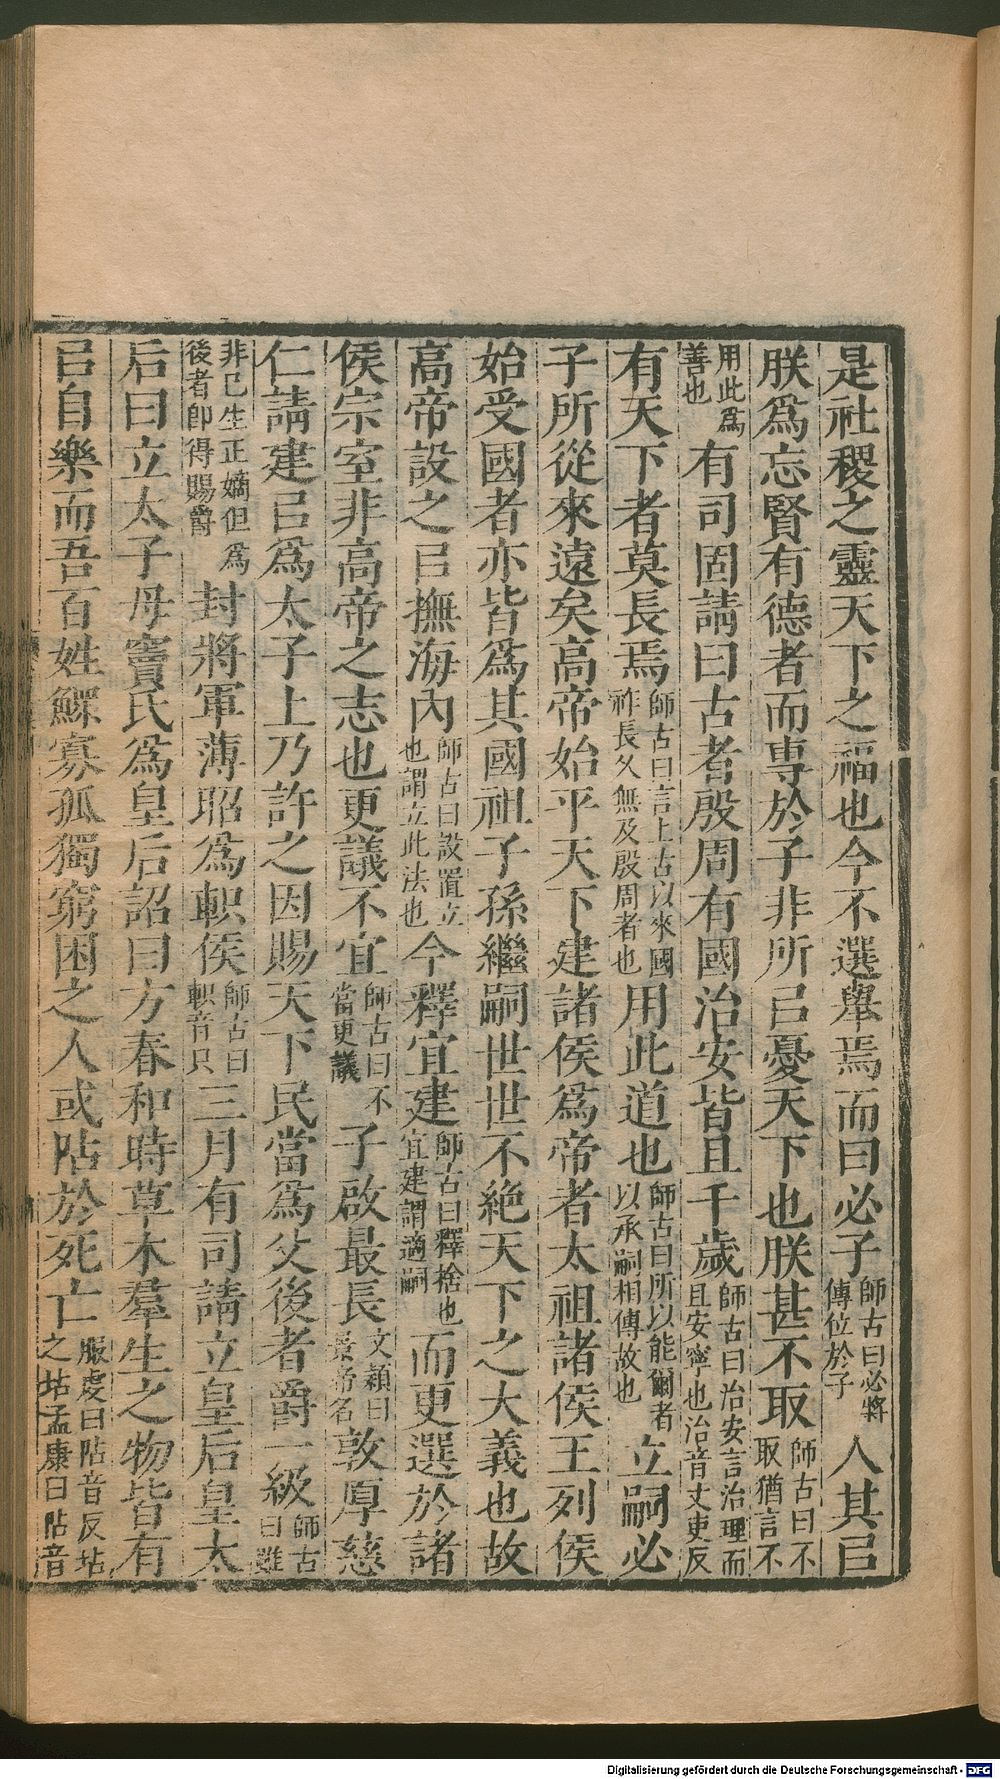 是社稷之靈天下之福也今不選舉焉而曰必子師古曰必將傳位於子人其㠯
朕爲忘賢有德者而專於子非所㠯憂天下也朕甚不取師古曰不取猶言不
用此爲善也有司固請曰古者殷周有國治安皆且千歲師古曰治安言治理而且安寧也治音丈吏反
有天下者莫長焉師古曰言上古以來國祚長久無及殷周者也用此道也師古曰所以能爾者以承嗣相傳故也立嗣必
子所從來遠矣高帝始平天下建諸侯爲帝者太祖諸侯王列侯
始受國者亦皆爲其國祖子孫繼嗣世世不絶天下之大義也故
高帝設之㠯撫海內師古曰設置立也謂立此法也今釋宜建師古曰釋捨也宜建謂適嗣而更選於諸
侯宗室非高帝之志也更議不宜師古曰不當更議子啟最長文穎曰景帝名敦厚慈
仁請建㠯爲太子上乃許之因賜天下民當爲父後者爵一級師古曰雖
非己生正嫡但爲後者即得賜爵封將軍薄昭爲軹侯師古曰軹音只三月有司請立皇后皇太
后曰立太子母竇氏爲皇后詔曰方春和時草木羣生之物皆有
㠯自樂而吾百姓鰥寡孤獨窮困之人或阽於死亡服虔曰阽音反坫之坫孟康曰阽音
Digitalisierung gefördert durch die Deutsche Forschungsgemeinschaft - DFG